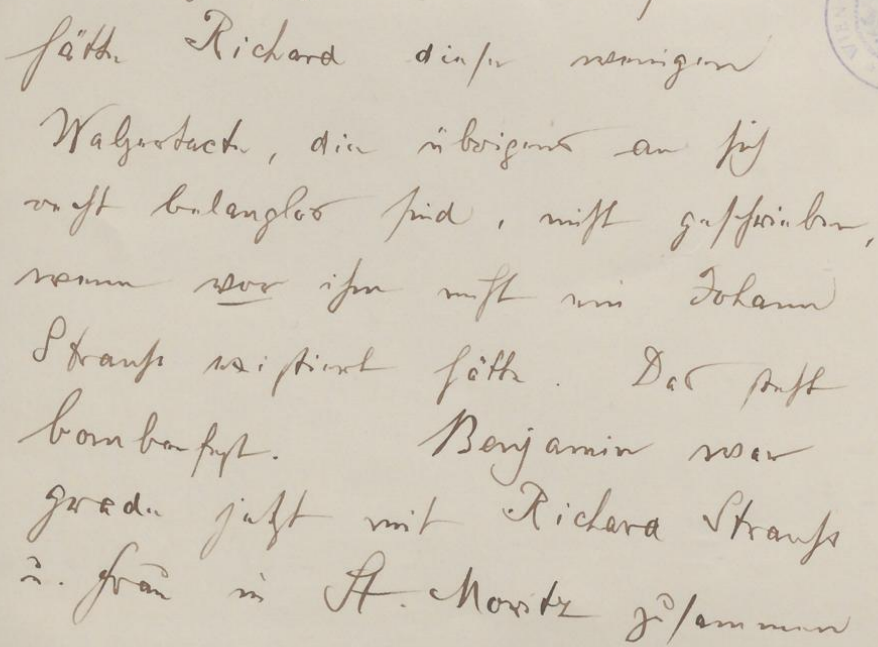 hätte Richard diese wenigen
Walzertacte, die übrigens an sich
recht belanglos sind, nicht geschrieben,
wenn vor ihm nicht ein Johann
Strauß existiert hätte. Das steht
bombenfest. Benjamin war
grade jetzt mit Richard Strauß
u. Frau in St. Moritz zusammen
WIEN